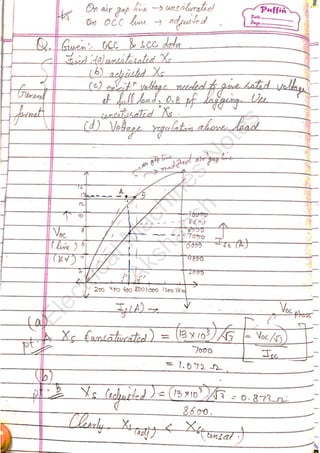 On air gap line → unsaturated
On OCC line → adjusted
Puffin
Date
Page
Q. Given:- OCC & SCC data.
Find:- (a) unsaturated Xs
(b) adjusted Xs
(c) excitⁿ voltage needed to give rated voltage
at full load, 0.8 pf lagging. Use
unsaturated Xs.
(d) Voltage regulation above load
General
format
→ air gap line
→ modified air gap line
A B
Voc
(line)
(kV)
10000
8600
8000
7000
6000
4000
2000
Isc (A)
200 400 600 800 1000 1200 1400
If (A) →
Electrical Machines Notes
(a)
pt. A Xs (unsaturated) = (13×10³)/√3 = Voc/√3
7000 Isc
Voc phase
= 1.072 Ω.
(b)
pt. B Xs (adjusted) = (13×10³)/√3 = 0.873 Ω
8600.
Clearly, Xs (adj) < Xs (unsat.)